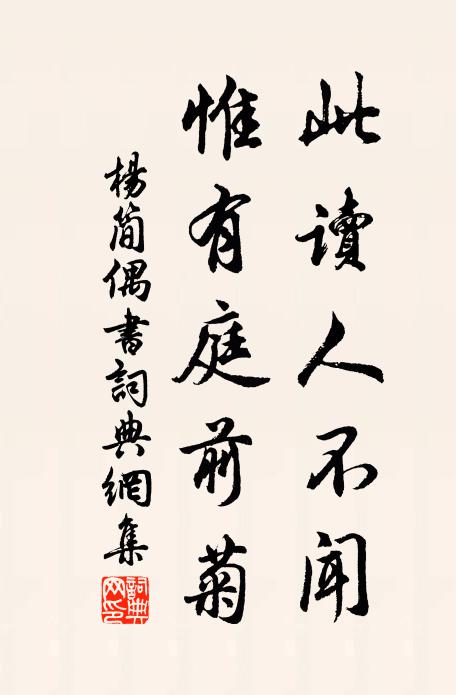 此讀人不闻
惟有庭前菊
楊简偶書詞典網集
詞典网印